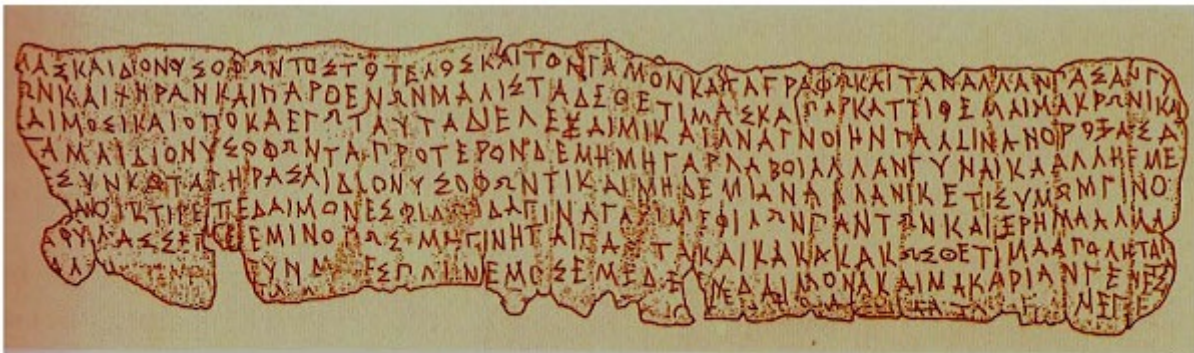 ΜΑΣΚΑΙΔΙΟΝΥΣΟΦΩΝΤΟΣΤΟΤΕΛΟΣΚΑΙΤΟΝΓΑΜΟΝΚΑΤΑΓΡΑΦΩΚΑΙΤΑΝΑΛΛΑΝΠΑΣΑΝΓΥ
ΩΝΚΑΙΧΗΡΑΝΚΑΙΠΑΡΘΕΝΩΝΜΑΛΙΣΤΑΔΕΘΕΤΙΜΑΣΚΑΙΠΑΡΚΑΤΤΙΘΕΜΑΙΜΑΚΡΩΝΙΚΑΙ
ΑΙΜΟΣΙΚΑΙΟΠΟΚΑΕΓΩΤΑΥΤΑΔΙΕΛΕΞΑΙΜΙΚΑΙΑΝΑΓΝΟΙΗΝΠΑΛΙΝΑΝΟΡΟΞΑΣΑ
ΑΜΑΙΔΙΟΝΥΣΟΦΩΝΤΑΠΡΟΤΕΡΟΝΔΕΜΗΜΗΓΑΡΛΑΒΟΙΑΛΛΑΝΓΥΝΑΙΚΑΑΛΛΗΕΜΕ
ΣΥΝΚΑΤΑΓΗΡΑΣΑΙΔΙΟΝΥΣΟΦΩΝΤΙΚΑΙΜΗΔΕΜΙΑΝΑΛΛΑΝΙΚΕΤΙΣΥΜΩΜΓΙΝΟ
ΑΝΟΙΚΤΙΡΕΤΕΔΑΙΜΟΝΕΣΦΙΛ ΔΑΓΙΝΑΓΑΡΙΜΕΦΙΛΩΝΠΑΝΤΩΝΚΑΙΕΡΗΜΑΑΛΛΑ
ΑΦΥΛΑΣΣΕΤΕΕΜΙΝΟΠΩΣΜΗΓΙΝΗΤΑΙΤΑ ΤΑΚΑΙΚΑΚΑΚΑΚΩΣΘΕΤΙΜΑΑΠΟΛΗΤΑΙ
ΑΛ ΥΝΜ ΕΣΠΛΗΝΕΜΟΣΕΜΕΔΕ ΔΑΙΜΟΝΑΚΑΙΜΑΚΑΡΙΑΝΓΕΝΕΣ
ΜΕΓΕ